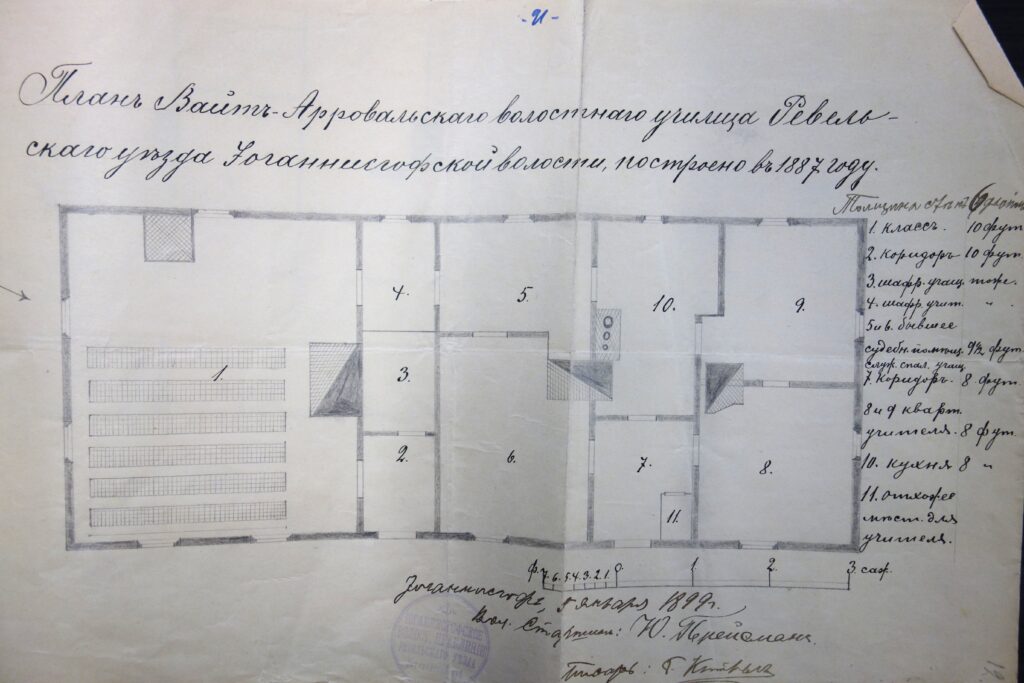 - 21 -
Планъ Вайтъ-Арровальскаго волостнаго училища Ревель-
скаго уѣзда Іоганнисгофской волости, построено въ 1887 году.
Толщина стѣнъ 6
1. классъ. 10 фут.
2. коридоръ 10 фут.
3. шафр. учащ. тоже.
4. шафр. учит. "
5 и 6. бывшее
судебн. помѣщ. 9½ фут.
служ. спал. учащ.
7. коридоръ. 8 фут.
8 и 9 кварт.
учителя. 8 фут.
10. кухня 8 "
11. отхожее
мѣст. для
учителя.
1.
2.
3.
4.
5.
6.
7.
8.
9.
10.
11.
ф. 7. 6. 5. 4. 3. 2. 1. 0 1 2 3. саж.
Іоганнисгофъ, 5 января 1899 г.
Вол. Старшина: Ю.
Писарь: Г.